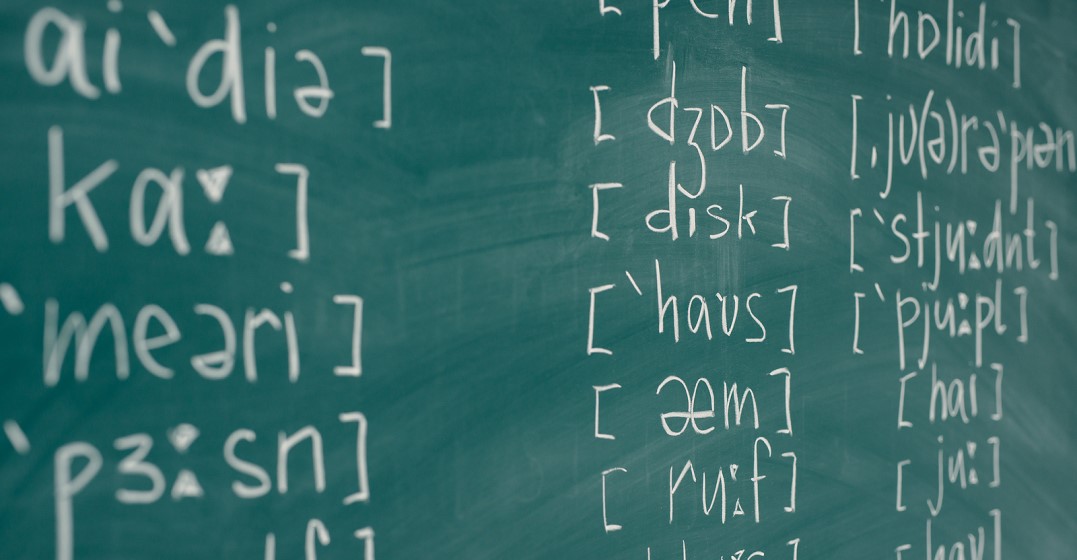 ai`diə]
kaː]
`meəri]
`pɜːsn]
[pen]
[dʒɒb]
[disk]
[`haʊs]
[æm]
[ruːf]
[`hɒlidi]
[ˌjʊ(ə)rə`pɪən
[`stjuːdnt]
[`pjuːpl]
[haɪ]
[juː]